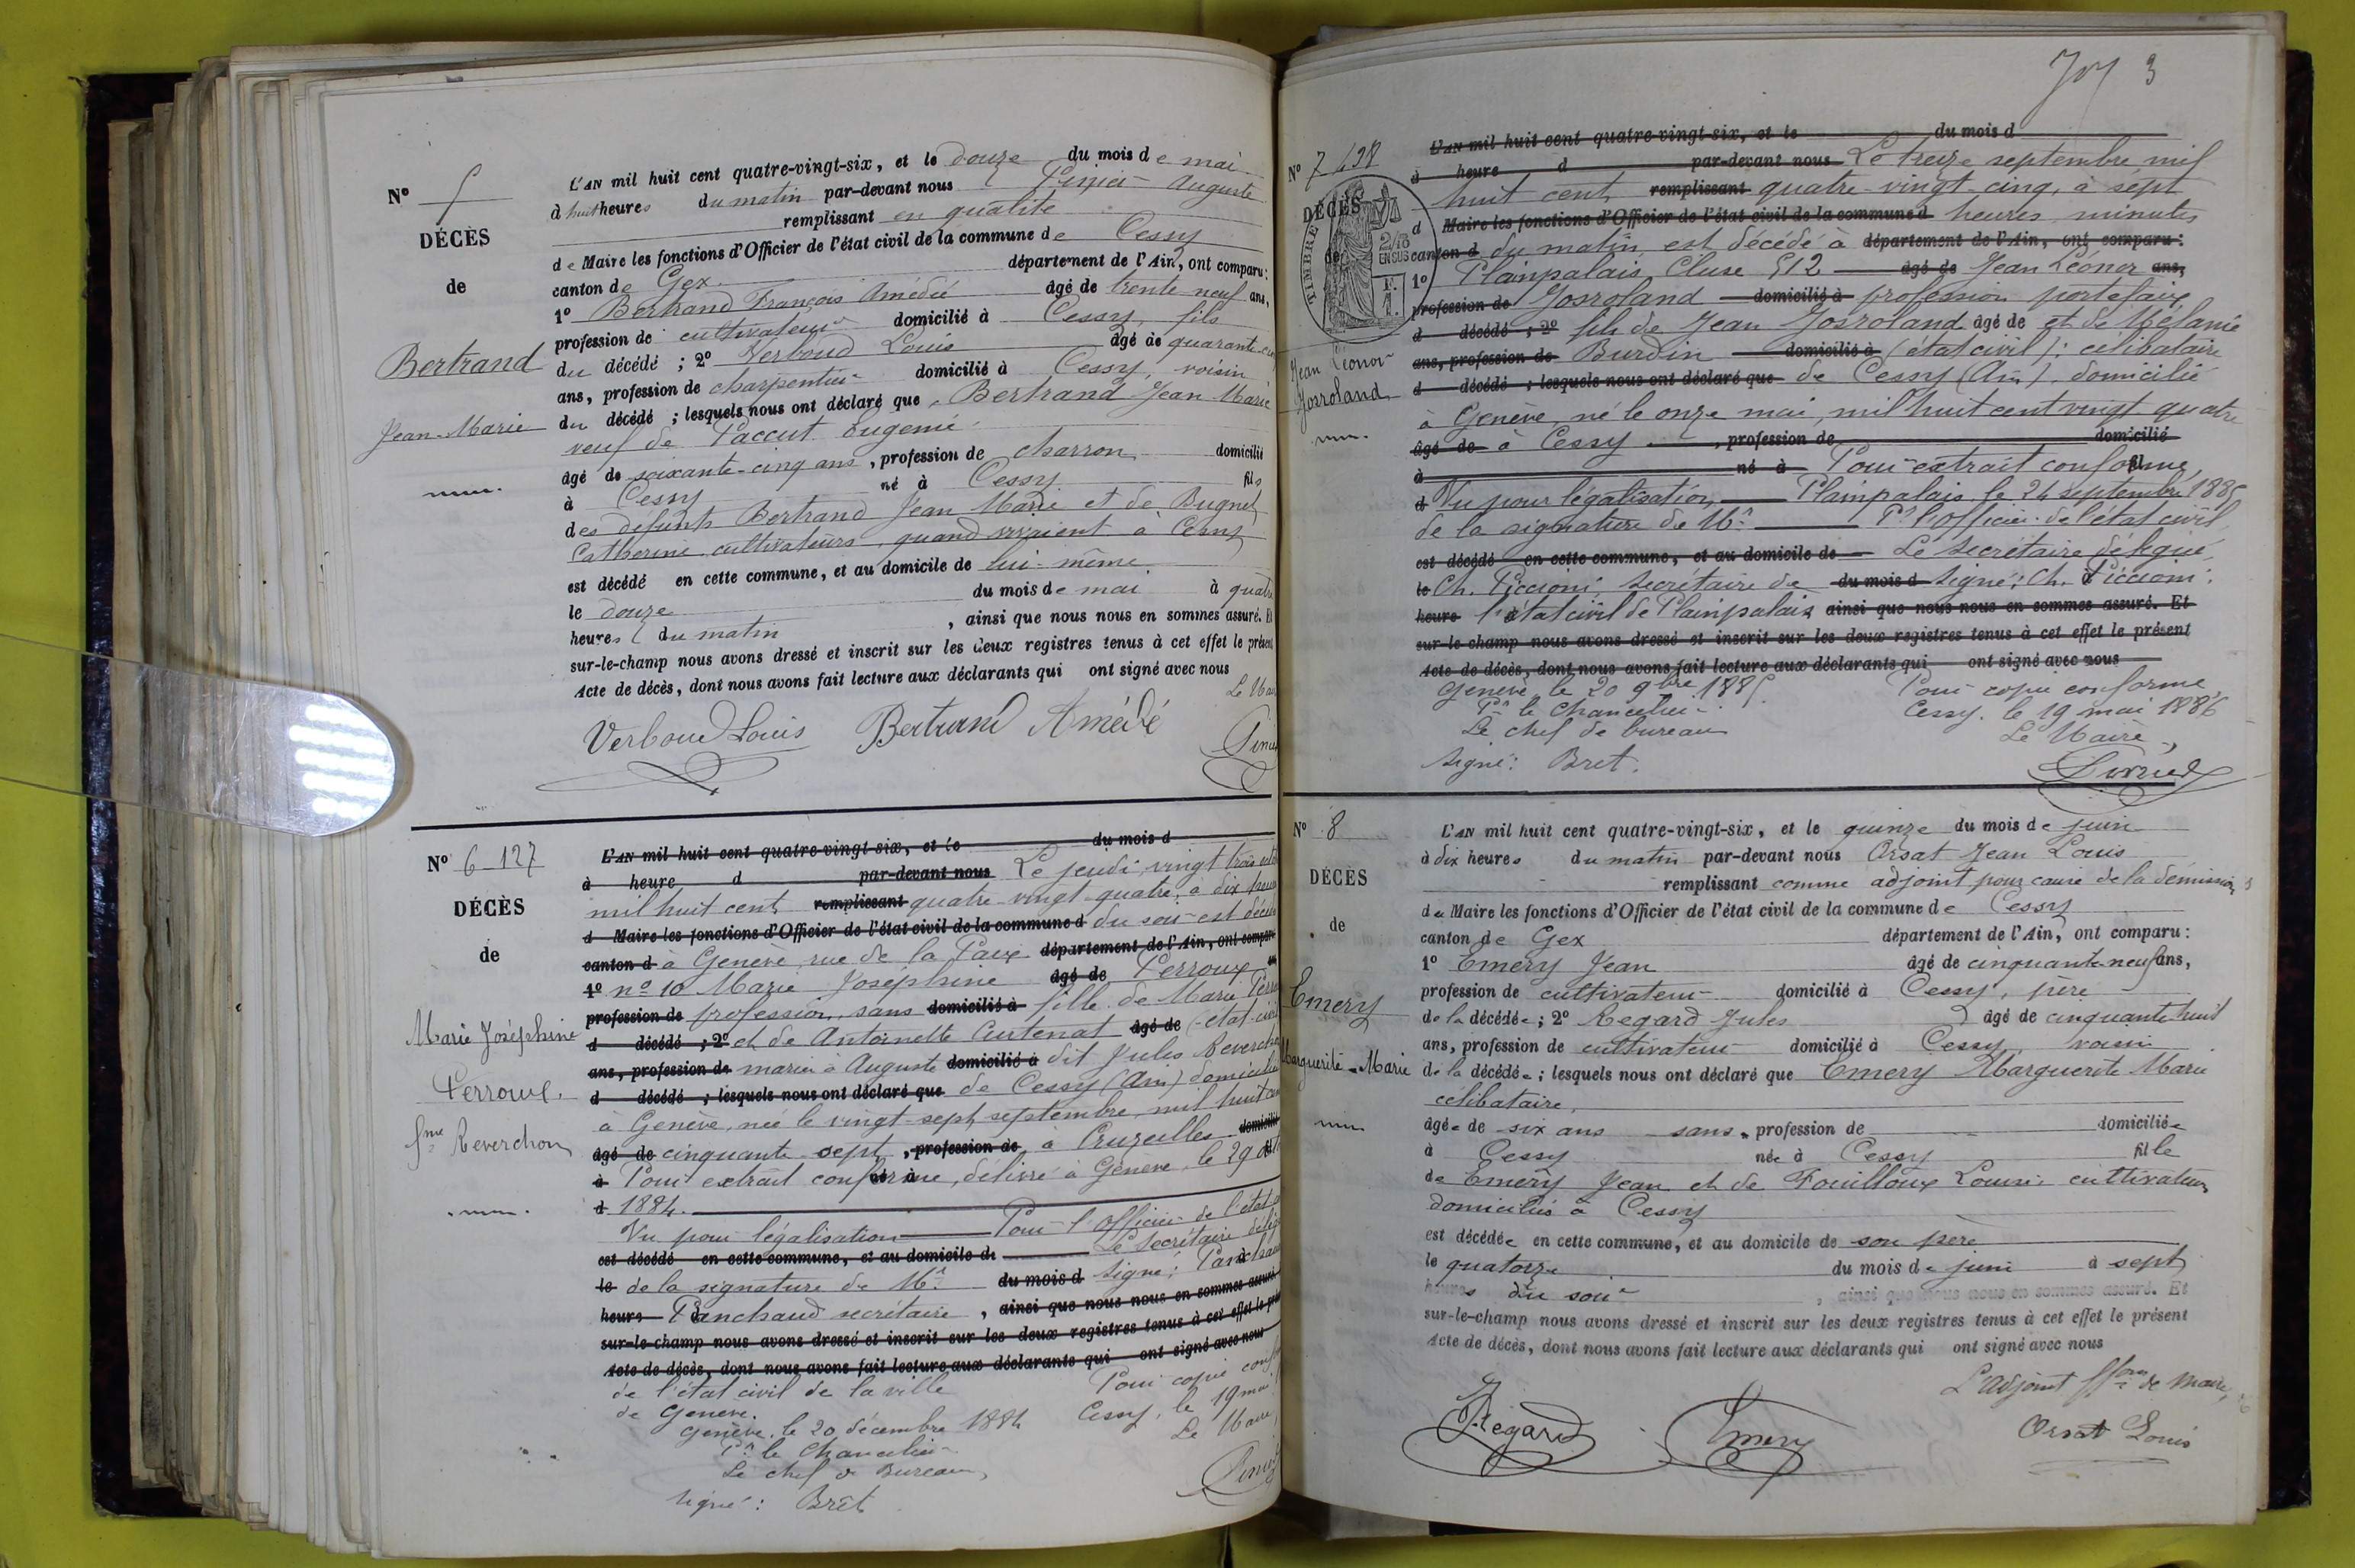 N° 5
DÉCÈS
de
Bertrand
Jean-Marie
L'AN mil huit cent quatre-vingt-six, et le douze du mois de mai
à huit heures du matin par-devant nous Auguste
remplissant en qualité
de Maire les fonctions d'Officier de l'état civil de la commune de Cessy
canton de Gex département de l'Ain, ont comparu :
1° Bertrand François Amédée âgé de trente neuf ans,
profession de cultivateur domicilié à Cessy, fils
du décédé ; 2° Verboud Louis âgé de quarante
ans, profession de charpentier domicilié à Cessy, voisin
du décédé ; lesquels nous ont déclaré que Bertrand Jean Marie
veuf de Paccut Eugénie
âgé de soixante-cinq ans, profession de charron domicilié
à Cessy né à Cessy fils
des défunts Bertrand Jean Marie et de Bugnet
Catherine cultivateurs, quand vivaient à Cessy
est décédé en cette commune, et au domicile de lui-même
le douze du mois de mai à quatre
heures du matin , ainsi que nous nous en sommes assuré. Et
sur-le-champ nous avons dressé et inscrit sur les deux registres tenus à cet effet le présent
Acte de décès, dont nous avons fait lecture aux déclarants qui ont signé avec nous
Le Maire
Verboud Louis Bertrand Amédé
N° 6-127
DÉCÈS
de
Marie Joséphine
Perroux
fme Reverchon
L'AN mil huit cent quatre-vingt-six, et le du mois d
à heure d par-devant nous Le jeudi, vingt trois
mil huit cent remplissant quatre-vingt-quatre, à dix heures
d Maire les fonctions d'Officier de l'état civil de la commune d du soir est décédée
canton d à Genève, rue de la Paix département de l'Ain, ont comparu
1° n° 10 Marie Joséphine âgé de Perroux
profession de profession, sans domicilié à fille de Marie
d décédé ; 2° et de Antoinette Curtenat âgé de (état-civil
ans, profession de mariée à Auguste domicilié à dit Jules Reverchon
d décédé ; lesquels nous ont déclaré que de Cessy (Ain) domiciliée
à Genève, née le vingt-sept septembre, mil huit cent
âgé de cinquante-sept, profession de à Cruzeilles domicilié
à Pour extrait conforme, délivré à Genève, le 29
d 1884.
Vu pour légalisation Pour l'Officier de l'état
est décédé en cette commune, et au domicile de Le Secrétaire
le de la signature de Mr du mois d signé : Panchaud
heure Panchaud secrétaire, ainsi que nous nous en sommes assuré
sur-le-champ nous avons dressé et inscrit sur les deux registres tenus à cet effet le
Acte de décès, dont nous avons fait lecture aux déclarants qui ont signé avec nous
de l'état civil de la ville Pour copie
de Genève. Cessy, le 19 mai
Genève, le 20 décembre 1884 Le Maire
Pr le Chancelier
Le chef de Bureau,
signé : Bret
3
N° 7
DÉCÈS
de
TIMBRE
2/10
EN SUS
Jean Léonor
Josroland
L'AN mil huit cent quatre-vingt-six, et le du mois d
à heure d par-devant nous Le treize septembre mil
huit cent remplissant quatre-vingt-cinq, à sept
d Maire les fonctions d'Officier de l'état civil de la commune d heures minutes
canton d du matin, est décédé à département de l'Ain, ont comparu :
1° Plainpalais, Cluse 512 âgé de Jean Léonor ans,
profession de Josroland domicilié à profession portefaix
d décédé ; 2° fils de Jean Josroland âgé de et de Mélanie
ans, profession de Burdin domicilié à (état civil) : célibataire
d décédé ; lesquels nous ont déclaré que de Cessy (Ain), domicilié
à Genève, né le onze mai, mil huit cent vingt-quatre
âgé de à Cessy , profession de domicilié
à né à Pour extrait conforme, fil
d Vu pour légalisation Plainpalais, le 24 septembre 1885
de la signature de Mr Pr l'Officier de l'état civil
est décédé en cette commune, et au domicile de Le Secrétaire délégué
le Ch. Piccioni, secrétaire de du mois d signé : Ch. Piccioni
heure l'état civil de Plainpalais, ainsi que nous nous en sommes assuré. Et
sur-le-champ nous avons dressé et inscrit sur les deux registres tenus à cet effet le présent
Acte de décès, dont nous avons fait lecture aux déclarants qui ont signé avec nous
Genève, le 20 9bre 1885. Pour copie conforme
Pr le Chancelier Cessy, le 19 mai 1886
Le chef de bureau Le Maire,
signé : Bret.
N° 8
DÉCÈS
de
Emery
Marguerite-Marie
L'AN mil huit cent quatre-vingt-six, et le quinze du mois de juin
à dix heures du matin par-devant nous Orsat Jean Louis
remplissant comme adjoint, pour cause de la démission
du Maire les fonctions d'Officier de l'état civil de la commune de Cessy
canton de Gex département de l'Ain, ont comparu :
1° Emery Jean âgé de cinquante-neuf ans,
profession de cultivateur domicilié à Cessy, père
de la décédée ; 2° Regard Jules âgé de cinquante-huit
ans, profession de cultivateur domicilié à Cessy, voisin
de la décédée ; lesquels nous ont déclaré que Emery Marguerite Marie
célibataire,
âgée de six ans sans, profession de domiciliée
à Cessy née à Cessy fille
de Emery Jean et de Fouilloux Louise cultivateurs
domiciliés à Cessy
est décédée en cette commune, et au domicile de son père
le quatorze du mois de juin à sept
heures du soir , ainsi que nous nous en sommes assuré. Et
sur-le-champ nous avons dressé et inscrit sur les deux registres tenus à cet effet le présent
Acte de décès, dont nous avons fait lecture aux déclarants qui ont signé avec nous
L'adjoint ffons de Maire,
Regard Emery Orsat Louis